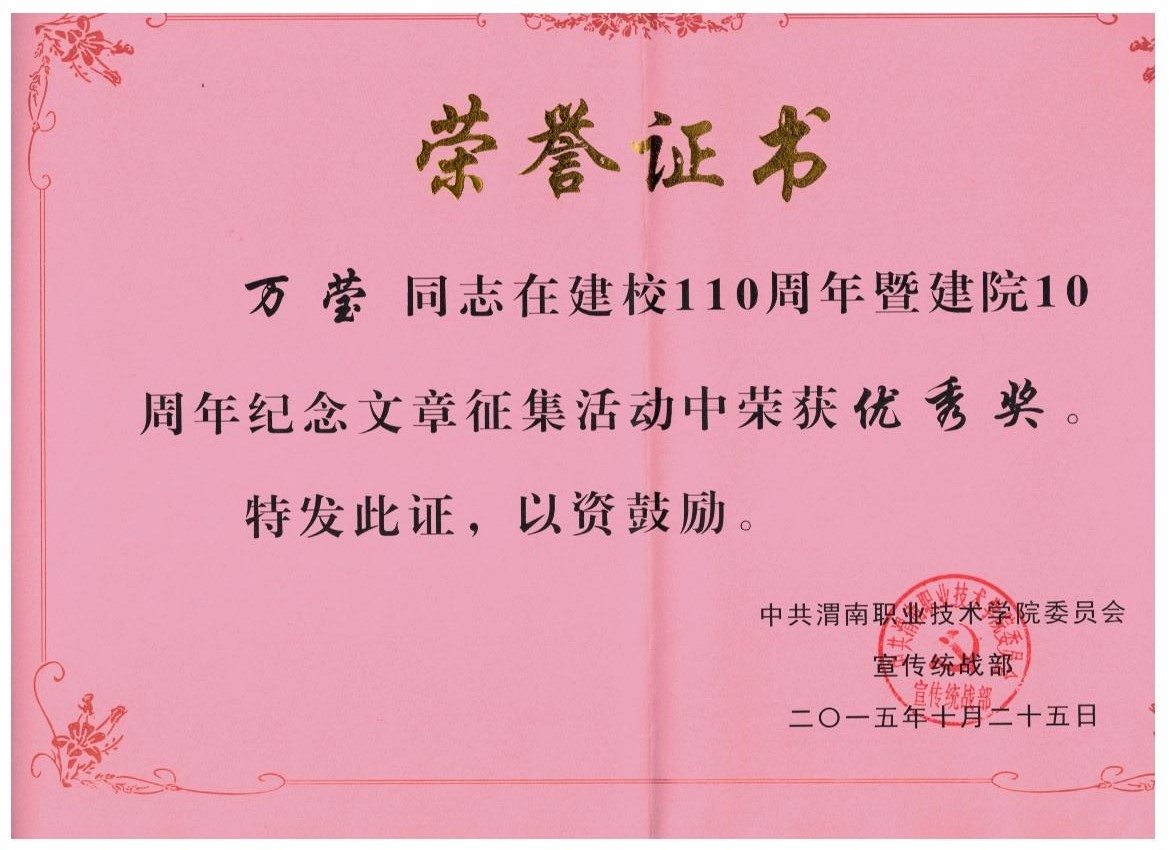 荣誉证书
万莹 同志在建校110周年暨建院10
周年纪念文章征集活动中荣获优秀奖。
特发此证，以资鼓励。
中共渭南职业技术学院委员会
宣传统战部
二〇一五年十月二十五日
中共渭南职业技术学院委员会
宣传统战部